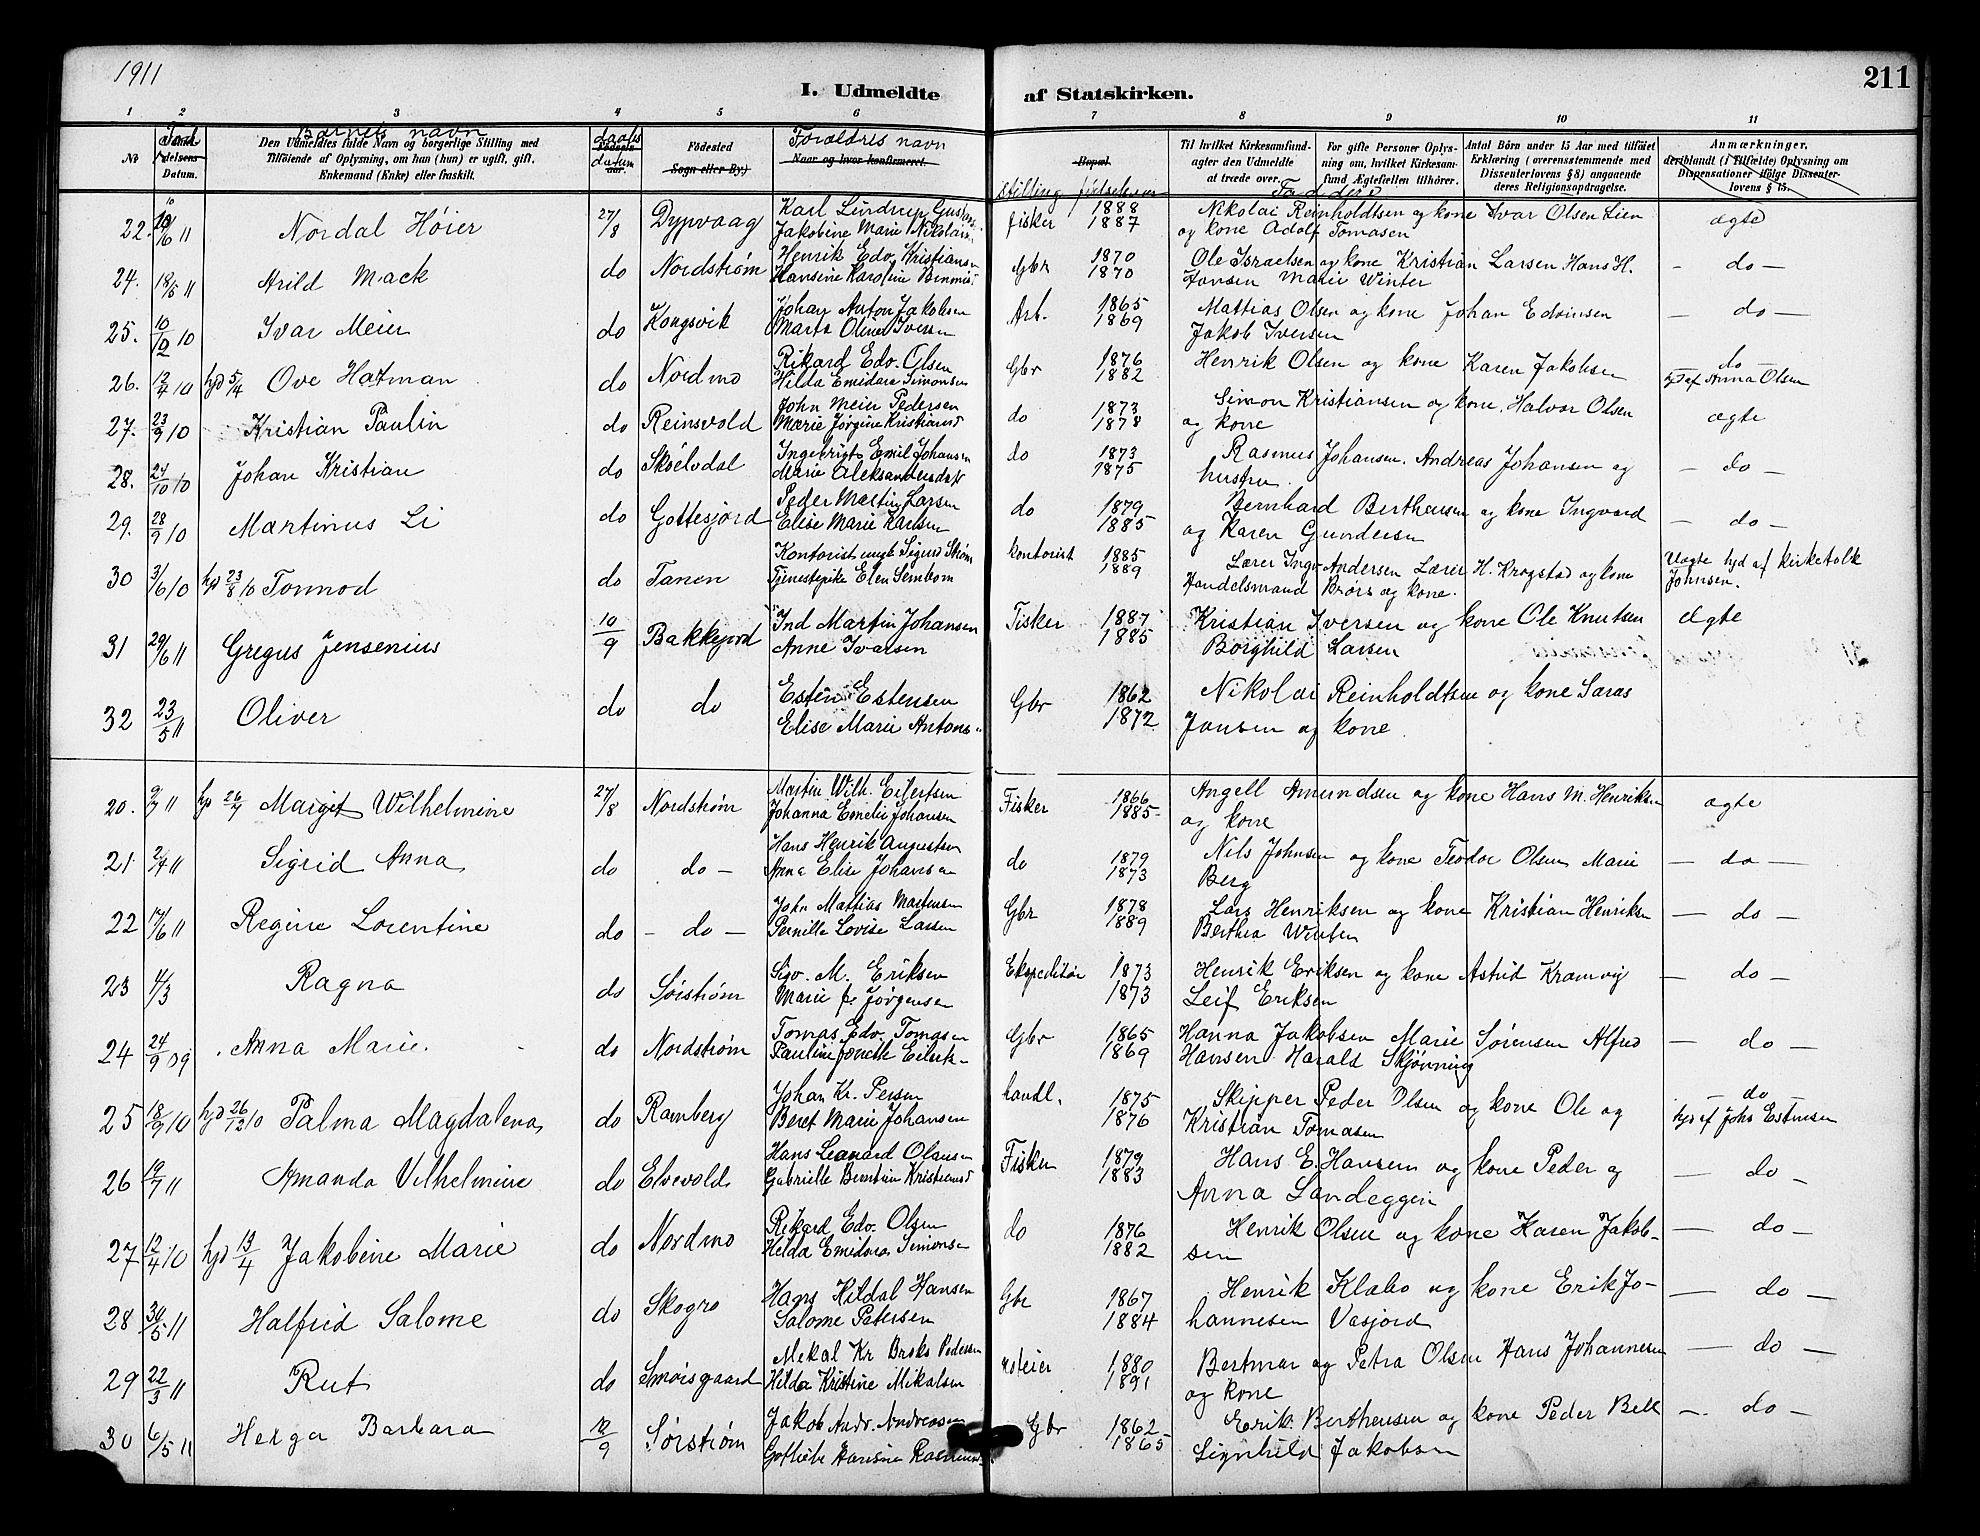 1911
I. Udmeldte af Statskirken.
211
1 2 3 4 5 6 7 8 9 10 11
No
Datum.
Barnets navn
Den Udmeldtes fulde Navn og borgerlige Stilling med
Tilføiende af Oplysning, om han (hun) er ugift, gift,
Enkemand (Enke) eller fraskilt.
daabs
datum
Fødested
Sogn eller By.)
Forældres navn
Naar og hvor konfirmeret.
Bopæl.
stilling fødselsaar
Til hvilket Kirkesamfund-
agter den Udmeldte
at træde over.
Faddere
For gifte Personer Oplys-
ning om, hvilket Kirkesam-
fund Ægtefællen tilhører.
Antal Børn under 15 Aar med tilføiet
Erklæring (overensstemmende med
Dissenterlovens § 8) angaaende
deres Religionsopdragelse.
Anmærkninger,
deriblandt (i Tilfælde) Oplysning om
Dispensationer ifølge Dissenter-
lovens § 15.
22. 11 Nordal Høier 27/8 Dypvaag Karl Lindrup
Jakobine Marie Nikolais.
fisker 1888
1887
Nikolai Reinholdtsen og kone Ivar Olsen Lien
og kone Adolf Tomasen
ægte
24. 18/5 11 Arild Mack do Nordstrøm Henrik Edv. Kristiansen
Hansine Karoline
Gbr 1870
1870
Ole Israelsen og kone Kristian Larsen Hans H.
Jansen Marie Winter
- do -
25. 10/12 10 Ivar Meier do Kongsvik Johan Anton Jakobsen
Marta Oline Iversen
Arb. 1865
1869
Mattias Olsen og kone Johan Edvinsen
Jakob Iversen
- do -
26. 12/4 10 hjd 5/4 Ove Hatman do Nordmo Rikard Edv. Olsen
Hilda Emidara Simonsen
Gbr 1876
1882
Henrik Olsen og kone Karen Jakobsen
do
hjd af Anna Olsen
27. 23/9 10 Kristian Paulin do Reinsvold John Meier Pedersen
Marie Jørgine Kristiansd
do 1873
1878
Simon Kristiansen og kone, Halvor Olsen
og kone
ægte
28. 24/10 10 Johan Kristian do Skoelvdal Ingebrigt Emil Johansen
Marie Aleksandersdat
do 1873
1875
Rasmus Johansen. Andreas Johansen og
hustru
- do -
29. 28/9 10 Martinus Li do Gottesjord Peder Martin Larsen
Elise Marie Karlsen
do 1879
1885
Bernhard Berthensen og kone Ingvard
og Karen Gundersen
- do -
30 3/6 10 hjd 23/8 10 Tormod do Tanen Kontorist ungk Sigurd Strøm
Tjenestepike Elen Sembom
kontorist 1885
1889
Lærer Ing. Andersen Lærer H. Krogstad og kone
Handelsmand Brørs og kone.
Uægte hjd af kirketolk
Johnsen.
31 29/6 11 Gregus Jensenius 10/9 Bakkejord Ind Martin Johansen
Anne Ivarsen
Fisker 1887
1885
Kristian Iversen og kone Ole Knutsen
Borghild Larsen
ægte
32 23/5 11 Oliver do do Esten Estensen
Elise Marie Antons
Gbr 1862
1872
Nikolai Reinholdtsen og kone Saras
Jansen og kone
20. 9/7 11 hjd 26/7 Margit Wilhelmine 27/8 Nordstrøm Martin Wilh. Eilertsen
Johanna Emelie Johansen
Fisker 1866
1885
Angell Amundsen og kone Hans M. Henriksen
og kone
ægte
21 2/4 11 Sigrid Anna do do - Hans Henrik Augustsen
Anna Elise Johansen
do 1879
1873
Nils Johnsen og kone Teodor Olsen Marie
Berg
- do -
22 17/6 11 Regine Lorentine do - do - John Mattias Martinsen
Pernille Lovise Larsen
Gbr 1878
1889
Lars Henriksen og kone Kristian Henriksen
Berthea Winter
- do -
23 4/3 Ragna do Sørstrøm Sigv. M. Eriksen
Marie f. Jørgensen
Ekspeditør 1873
1873
Henrik Eriksen og kone Astrid Kramvig
Leif Eriksen
- do -
24 24/9 09 Anna Marie. do Nordstrøm Tomas Edv. Tomasen
Pauline Jonette Eilerts-
Gbr 1865
1869
Hanna Jakobsen Marie Sørensen Alfred
Hansen Harald Skjønning
- do -
25 18/9 10 hjd 26/12 10 Palma Magdalena do Ramberg Johan Kr. Persen
Beret Marie Johansen
handl. 1875
1876
Skipper Peder Olsen og kone Ole og
Kristian Tomasen
- do -
hjd af Johs Estensen
26 19/7 11 Amanda Vilhelmine do Elvevold Hans Leonard Olausen
Gabrielle Berntine Kristiansd
Fisker 1879
1883
Hans E. Hansen og kone Peder og
Anna Sandeggen
- do -
27 12/4 10 hjd 13/4 Jakobine Marie do Nordmo Rikard Edv. Olsen
Hilda Emidora Simonsen
do 1876
1882
Henrik Olsen og kone Karen Jakob-
sen
- do -
28 30/5 11 Halfrid Salome do Skogro Hans Hildal Hansen
Salome Petersen
Gbr 1867
1884
Henrik Klabo og kone Erik Jo-
hannesen Vasjord
- do -
29 22/3 11 Rut do Smørsgaard Mekal Kr Broks Pedersen
Hilda Kristine Mikalsen
1880
1891
Bertmar og Petra Olsen Hans Johannesen
og kone
- do -
30 6/5 11 Helga Barbara 12/9 Sørstrøm Jakob Andr. Andreasen
Gotliebe Hansine
Gbr 1862
1865
Erik Berthensen og kone Peder Bell
Signhild Jakobsen
- do -